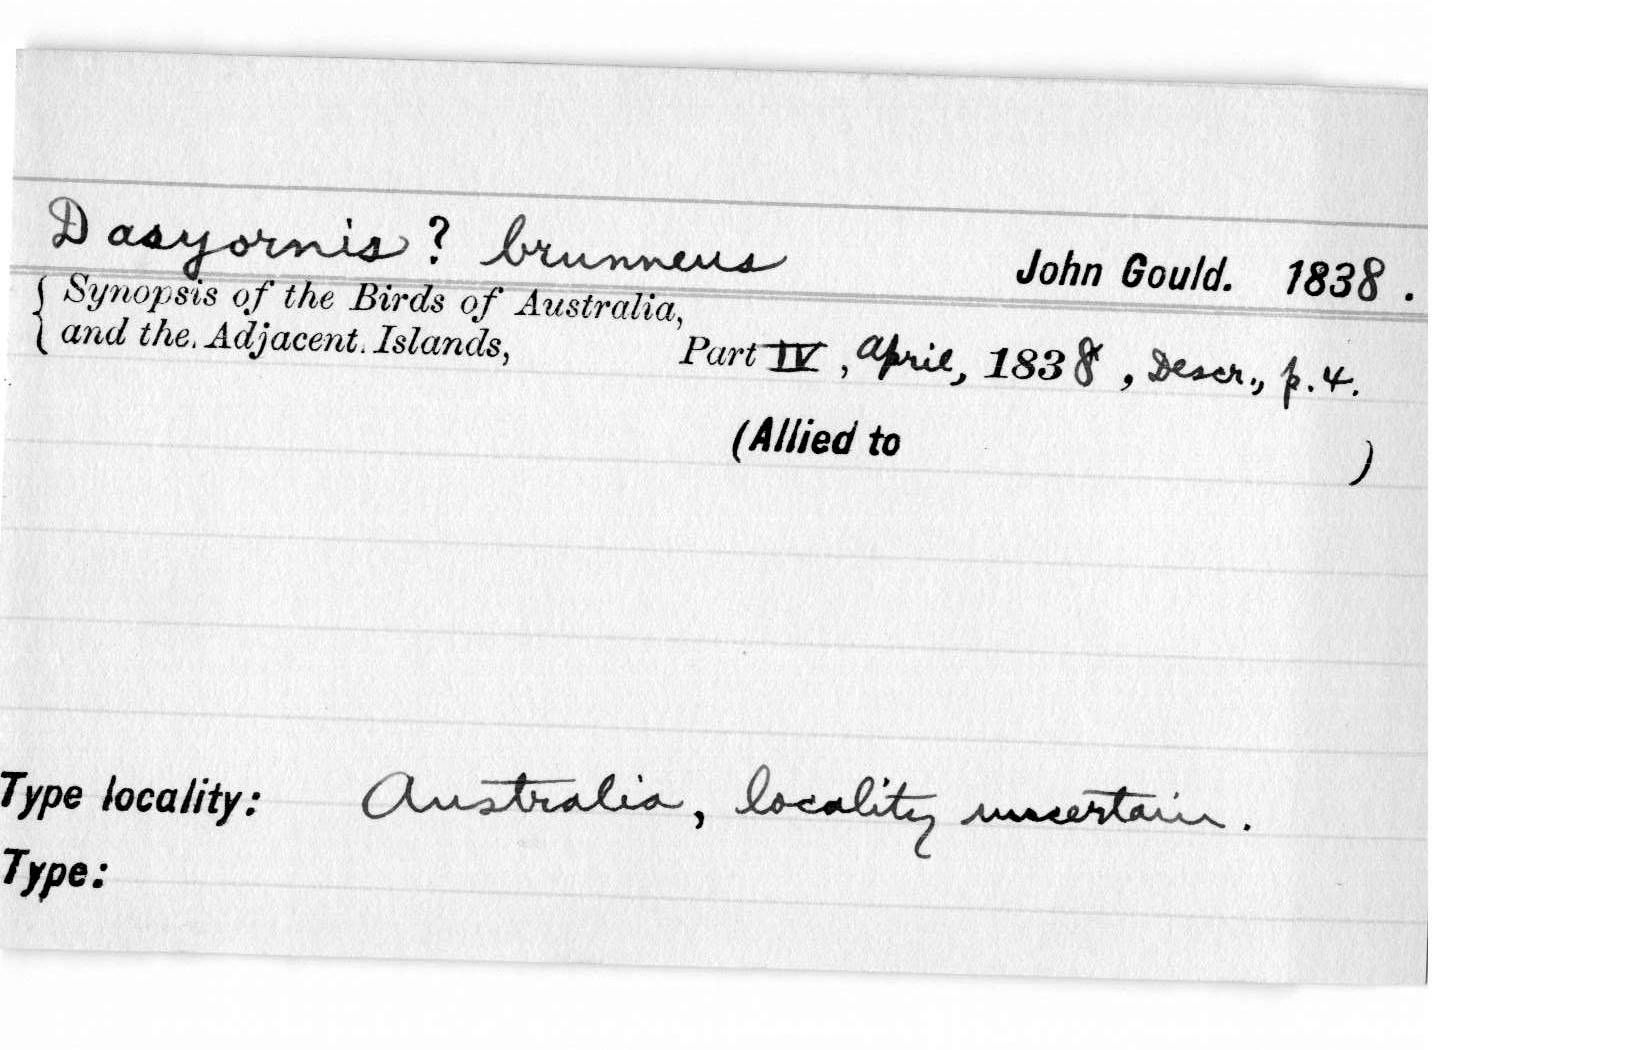 Dasyornis ? brunneus John Gould. 1838.
{ Synopsis of the Birds of Australia,
and the Adjacent Islands, Part IV, April, 1838, Descr., p. 4.
(Allied to )
Type locality: Australia, locality uncertain.
Type: